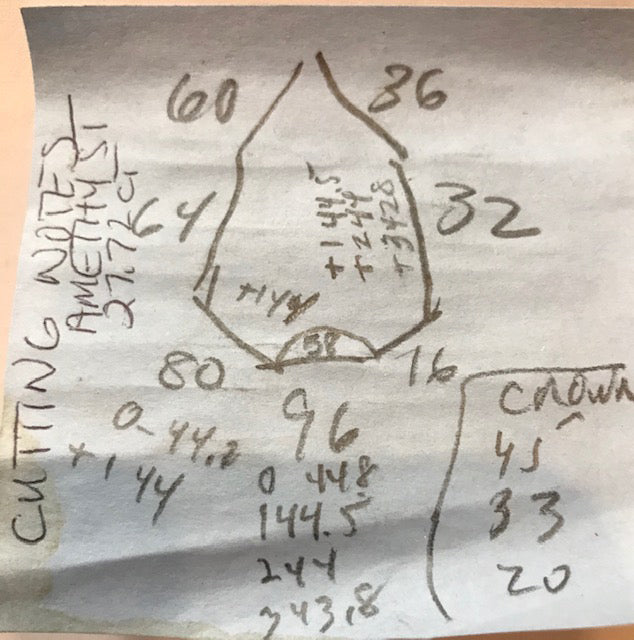 CUTTING NOTES
AMETHYST
27.72 ct
60
36
64
32
+144.5
+244
+3428
+144
58
80
16
96
0-44.2
+.144
0 448
144.5
244
343.8
CROWN
45
33
20